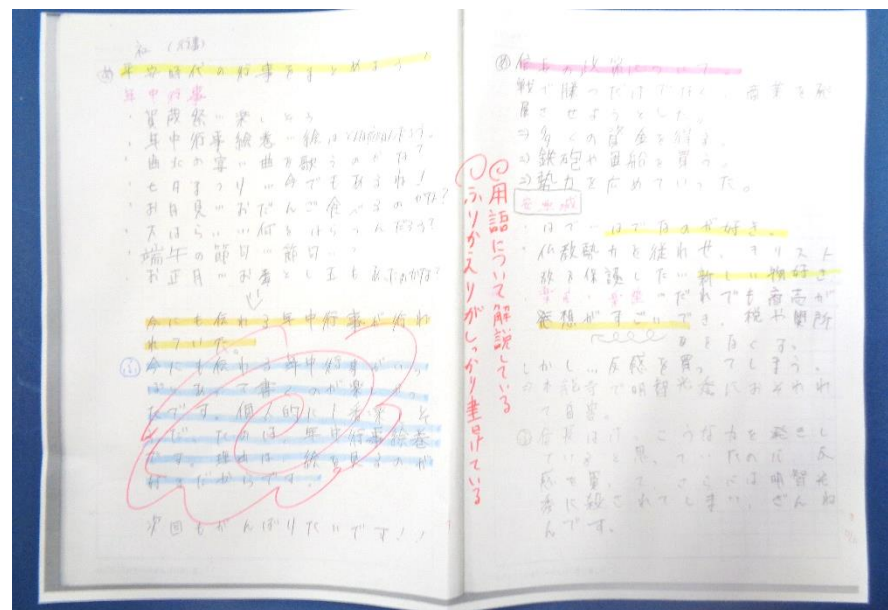 社
め 平安時代の行事をまとめよう!
年中行事
・賀茂祭…楽しそう
・年中行事絵巻…絵は
・曲水の宴…曲を歌うのかな?
・七月まつり…今でもあるね!
・お月見…おだんご食べるのかな?
・大はらい…何をはらったんだろう?
・端午の節句…節句…?
・お正月…お年玉も
今にも伝わる年中行事が行わ
れていた。
ふ 今にも伝わる年中行事がいっ
ぱいあって書くのが楽しかっ
たです。個人的に1番楽しそ
うだったのは、年中行事絵巻
です。理由は、絵を見るのが
好きだからです。
次回もがんばりたいです!!
①用語について解説している
②ふりかえりがしっかり書けている
め 信長の政策について。
戦で勝っただけでなく、商業を発
展させようとした。
⇒多くの資金を得る。
⇒鉄砲や軍船を買う。
⇒勢力を広めていった。
安土城
・はで…はでなのが好き。
・仏教勢力を従わせ、キリスト
教を保護した…新しい物好き
・楽市・楽座…だれでも商売が
発想がすごい でき、税や関所
をなくす。
しかし…反感を買ってしまう。
⇒本能寺で明智光秀におそわれ
て自害。
ふ 信長はけっこうな力を発きし
ていると思っていたのに、反
感を買って、さらには明智光
秀に殺されてしまい、ざんね
んです。